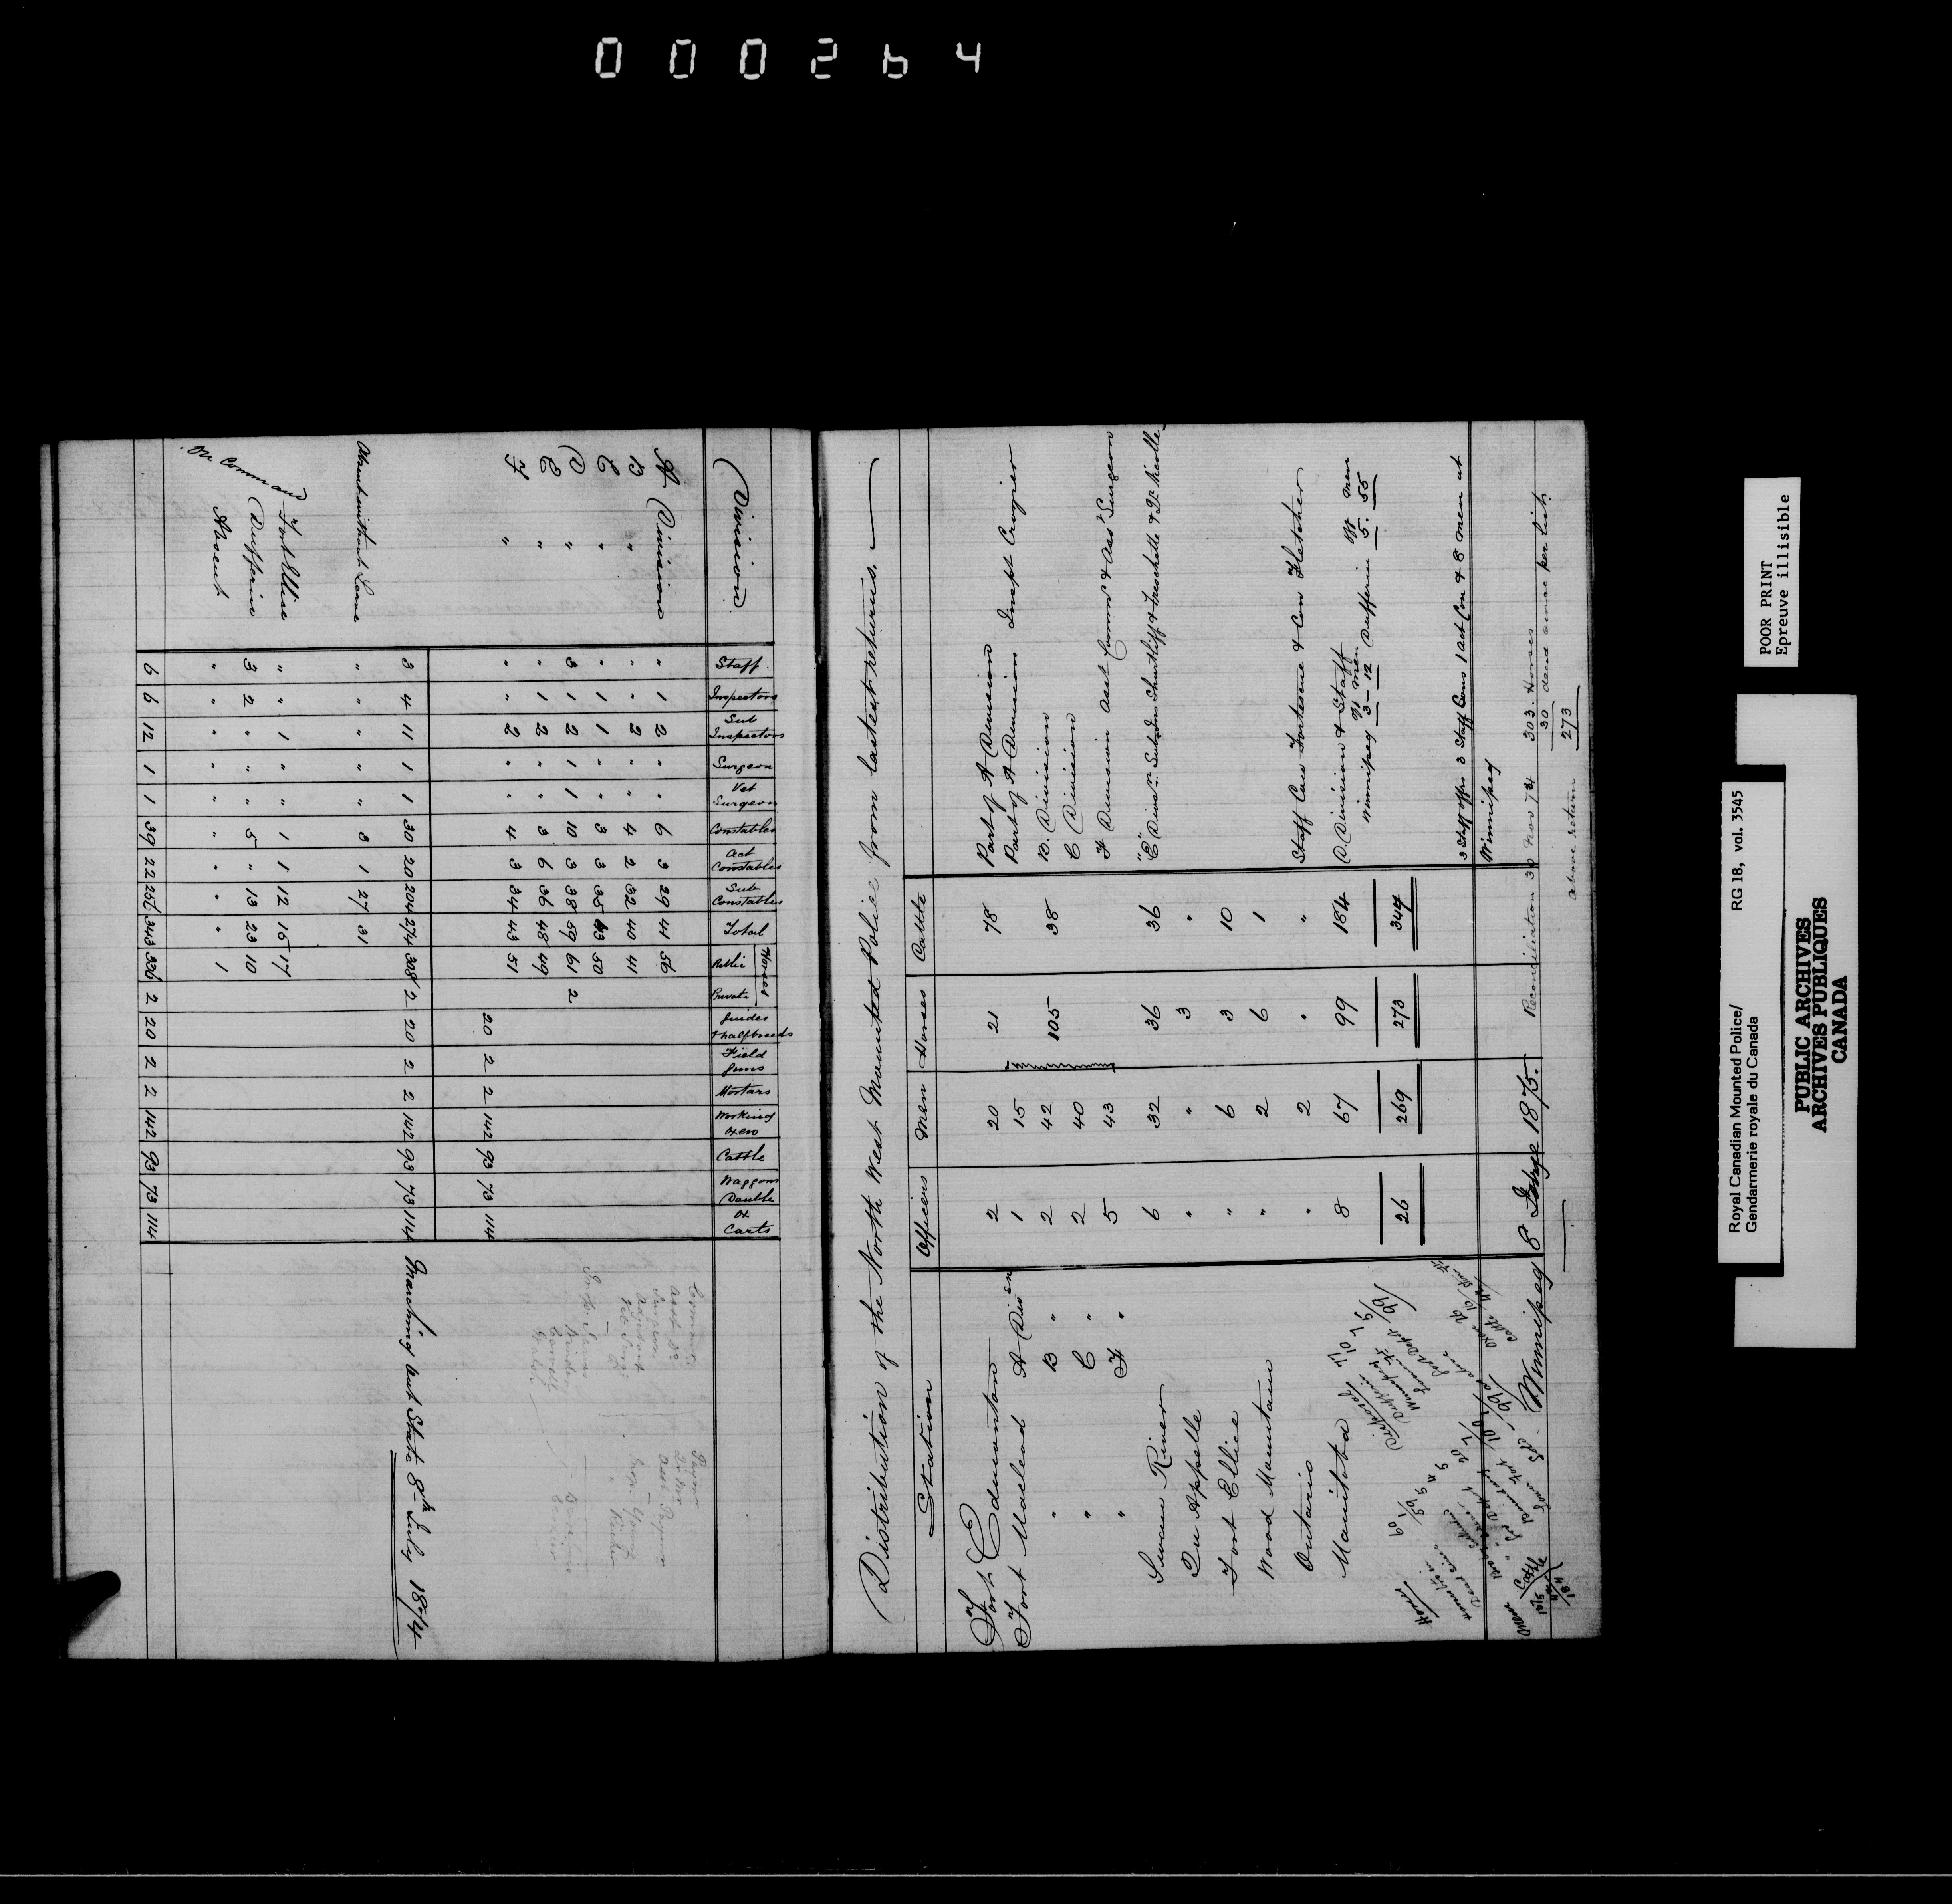 000264
Division
Staff
Inspectors
Sub Inspectors
Surgeon
Vet Surgeon
Constables
Act Constables
Sub Constables
Total
Horses
Public
Private
Guides & halfbreeds
Field Guns
Mortars
Working Oxen
Cattle
Waggons Double
Ox Carts
A Division " 1 2 " " 6 3 29 41 56
B " " " 2 " " 4 2 32 40 41
C " " 1 1 " " 3 3 35 43 50
D " 3 1 2 1 1 10 3 38 59 61 2
E " " 1 2 " " 3 6 36 48 49
F " " " 2 " " 4 3 34 43 51
20 2 2 142 93 73 114
3 4 11 1 1 30 20 204 274 308 2 20 2 2 142 93 73 114 Marching out State 8th July 1874
Absent without Leave " " " " " 3 1 27 31
On Command
Fort Ellice " " 1 " " 1 1 12 15 17
Dufferin 3 2 " " " 5 " 13 23 10
Absent " " " " " " " " " 1
6 6 12 1 1 39 22 256 343 336 2 20 2 2 142 93 73 114
Distribution of the North West Mounted Police from lastest returns.
Station Officers Men Horses Cattle
Fort Edmonton 2 20 21 78 Part of A Division
Fort Macleod A Disn 1 15 Part of A Division Inspt Crozier
" B " 2 42 105 38 B. Division
" C " 2 40 C Division
" F " 5 43 F Division Asst Comr & Asst Surgeon
Swan River 6 32 36 36 "E" Divisn. Sub Ins Shurtliff & Frechette & Dr Kittle
Qu Appelle " " 3 "
Fort Ellice " 6 3 10
Wood Mountain " 2 6 1
Ontario " 2 " " Staff Con Fortescue & Con Fletcher
Manitoba 8 67 99 184 D. Division & Staff
Off Men Off Men
Winnipeg 3 - 12 Dufferin 5. 55
26 269 273 344
3 Staff offrs 3 Staff Cons 1 act Con & 8 men at
Winnipeg
Winnipeg 8 Feby 1875.
Reconciliation 30 Nov 74 303. Horses
30 dead since per list.
above return 273
POOR PRINT
Epreuve illisible
Royal Canadian Mounted Police/ RG 18, vol. 3545
Gendarmerie royale du Canada
PUBLIC ARCHIVES
ARCHIVES PUBLIQUES
CANADA